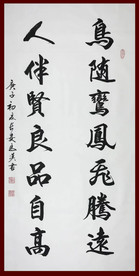 鳥随鸞鳳飛騰遠
人伴賢良品自高
庚子初夏